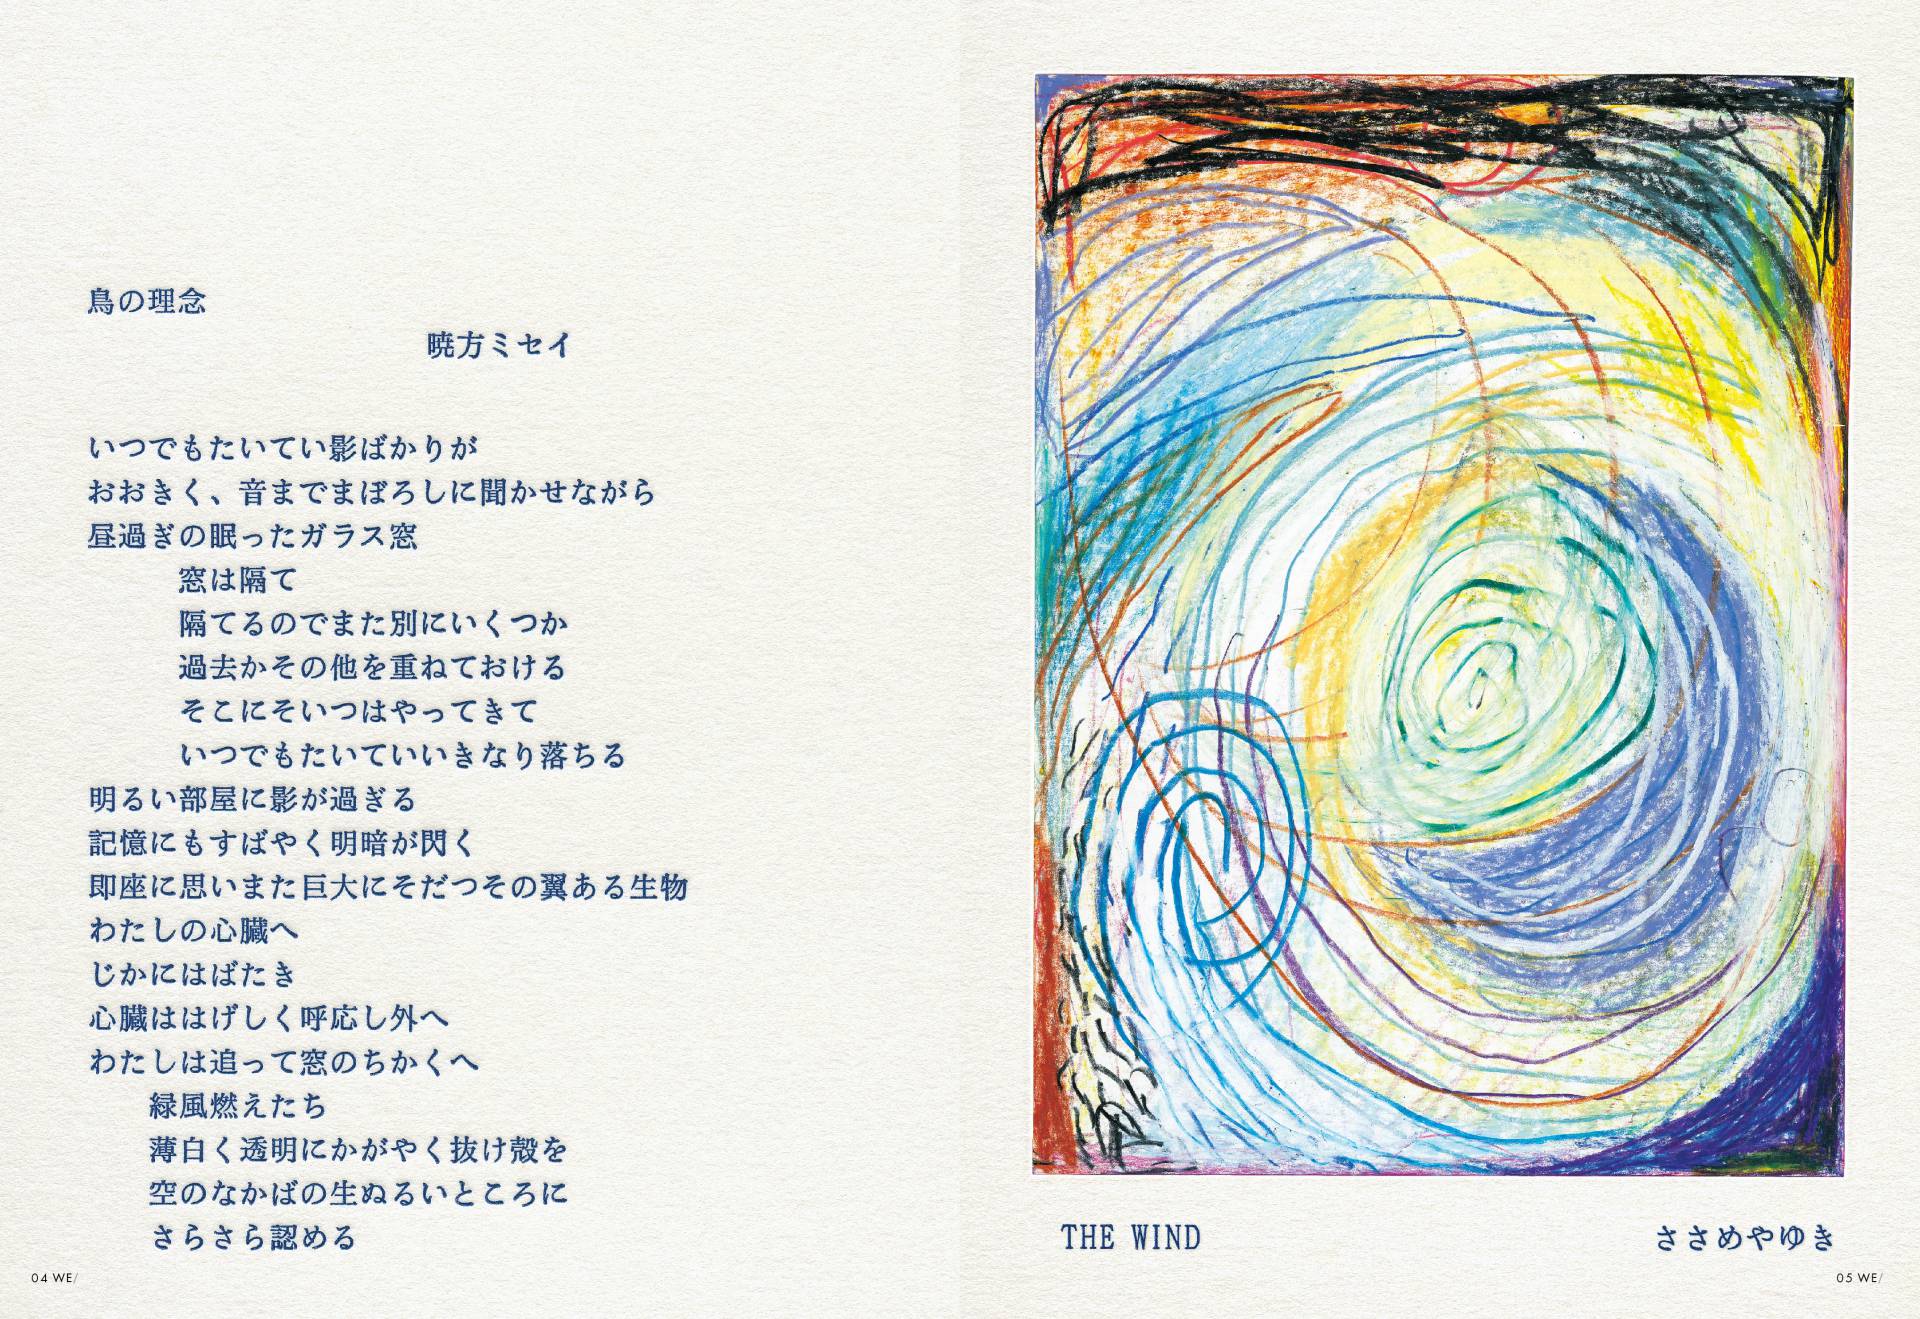 鳥の理念
暁方ミセイ
いつでもたいてい影ばかりが
おおきく、音までまぼろしに聞かせながら
昼過ぎの眠ったガラス窓
窓は隔て
隔てるのでまた別にいくつか
過去かその他を重ねておける
そこにそいつはやってきて
いつでもたいていいきなり落ちる
明るい部屋に影が過ぎる
記憶にもすばやく明暗が閃く
即座に思いまた巨大にそだつその翼ある生物
わたしの心臓へ
じかにはばたき
心臓ははげしく呼応し外へ
わたしは追って窓のちかくへ
緑風燃えたち
薄白く透明にかがやく抜け殻を
空のなかばの生ぬるいところに
さらさら認める
04 WE/
THE WIND
ささめやゆき
05 WE/